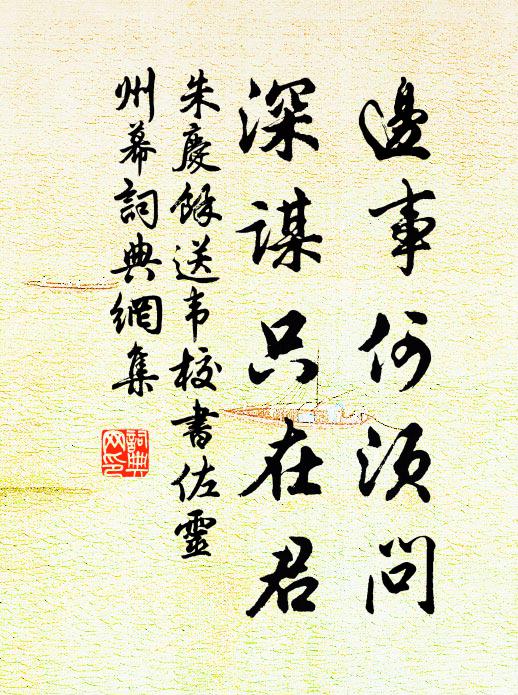 邊事何須問
深謀只在君
朱慶餘送韦校書佐靈
州幕詞典網集
詞典
网印